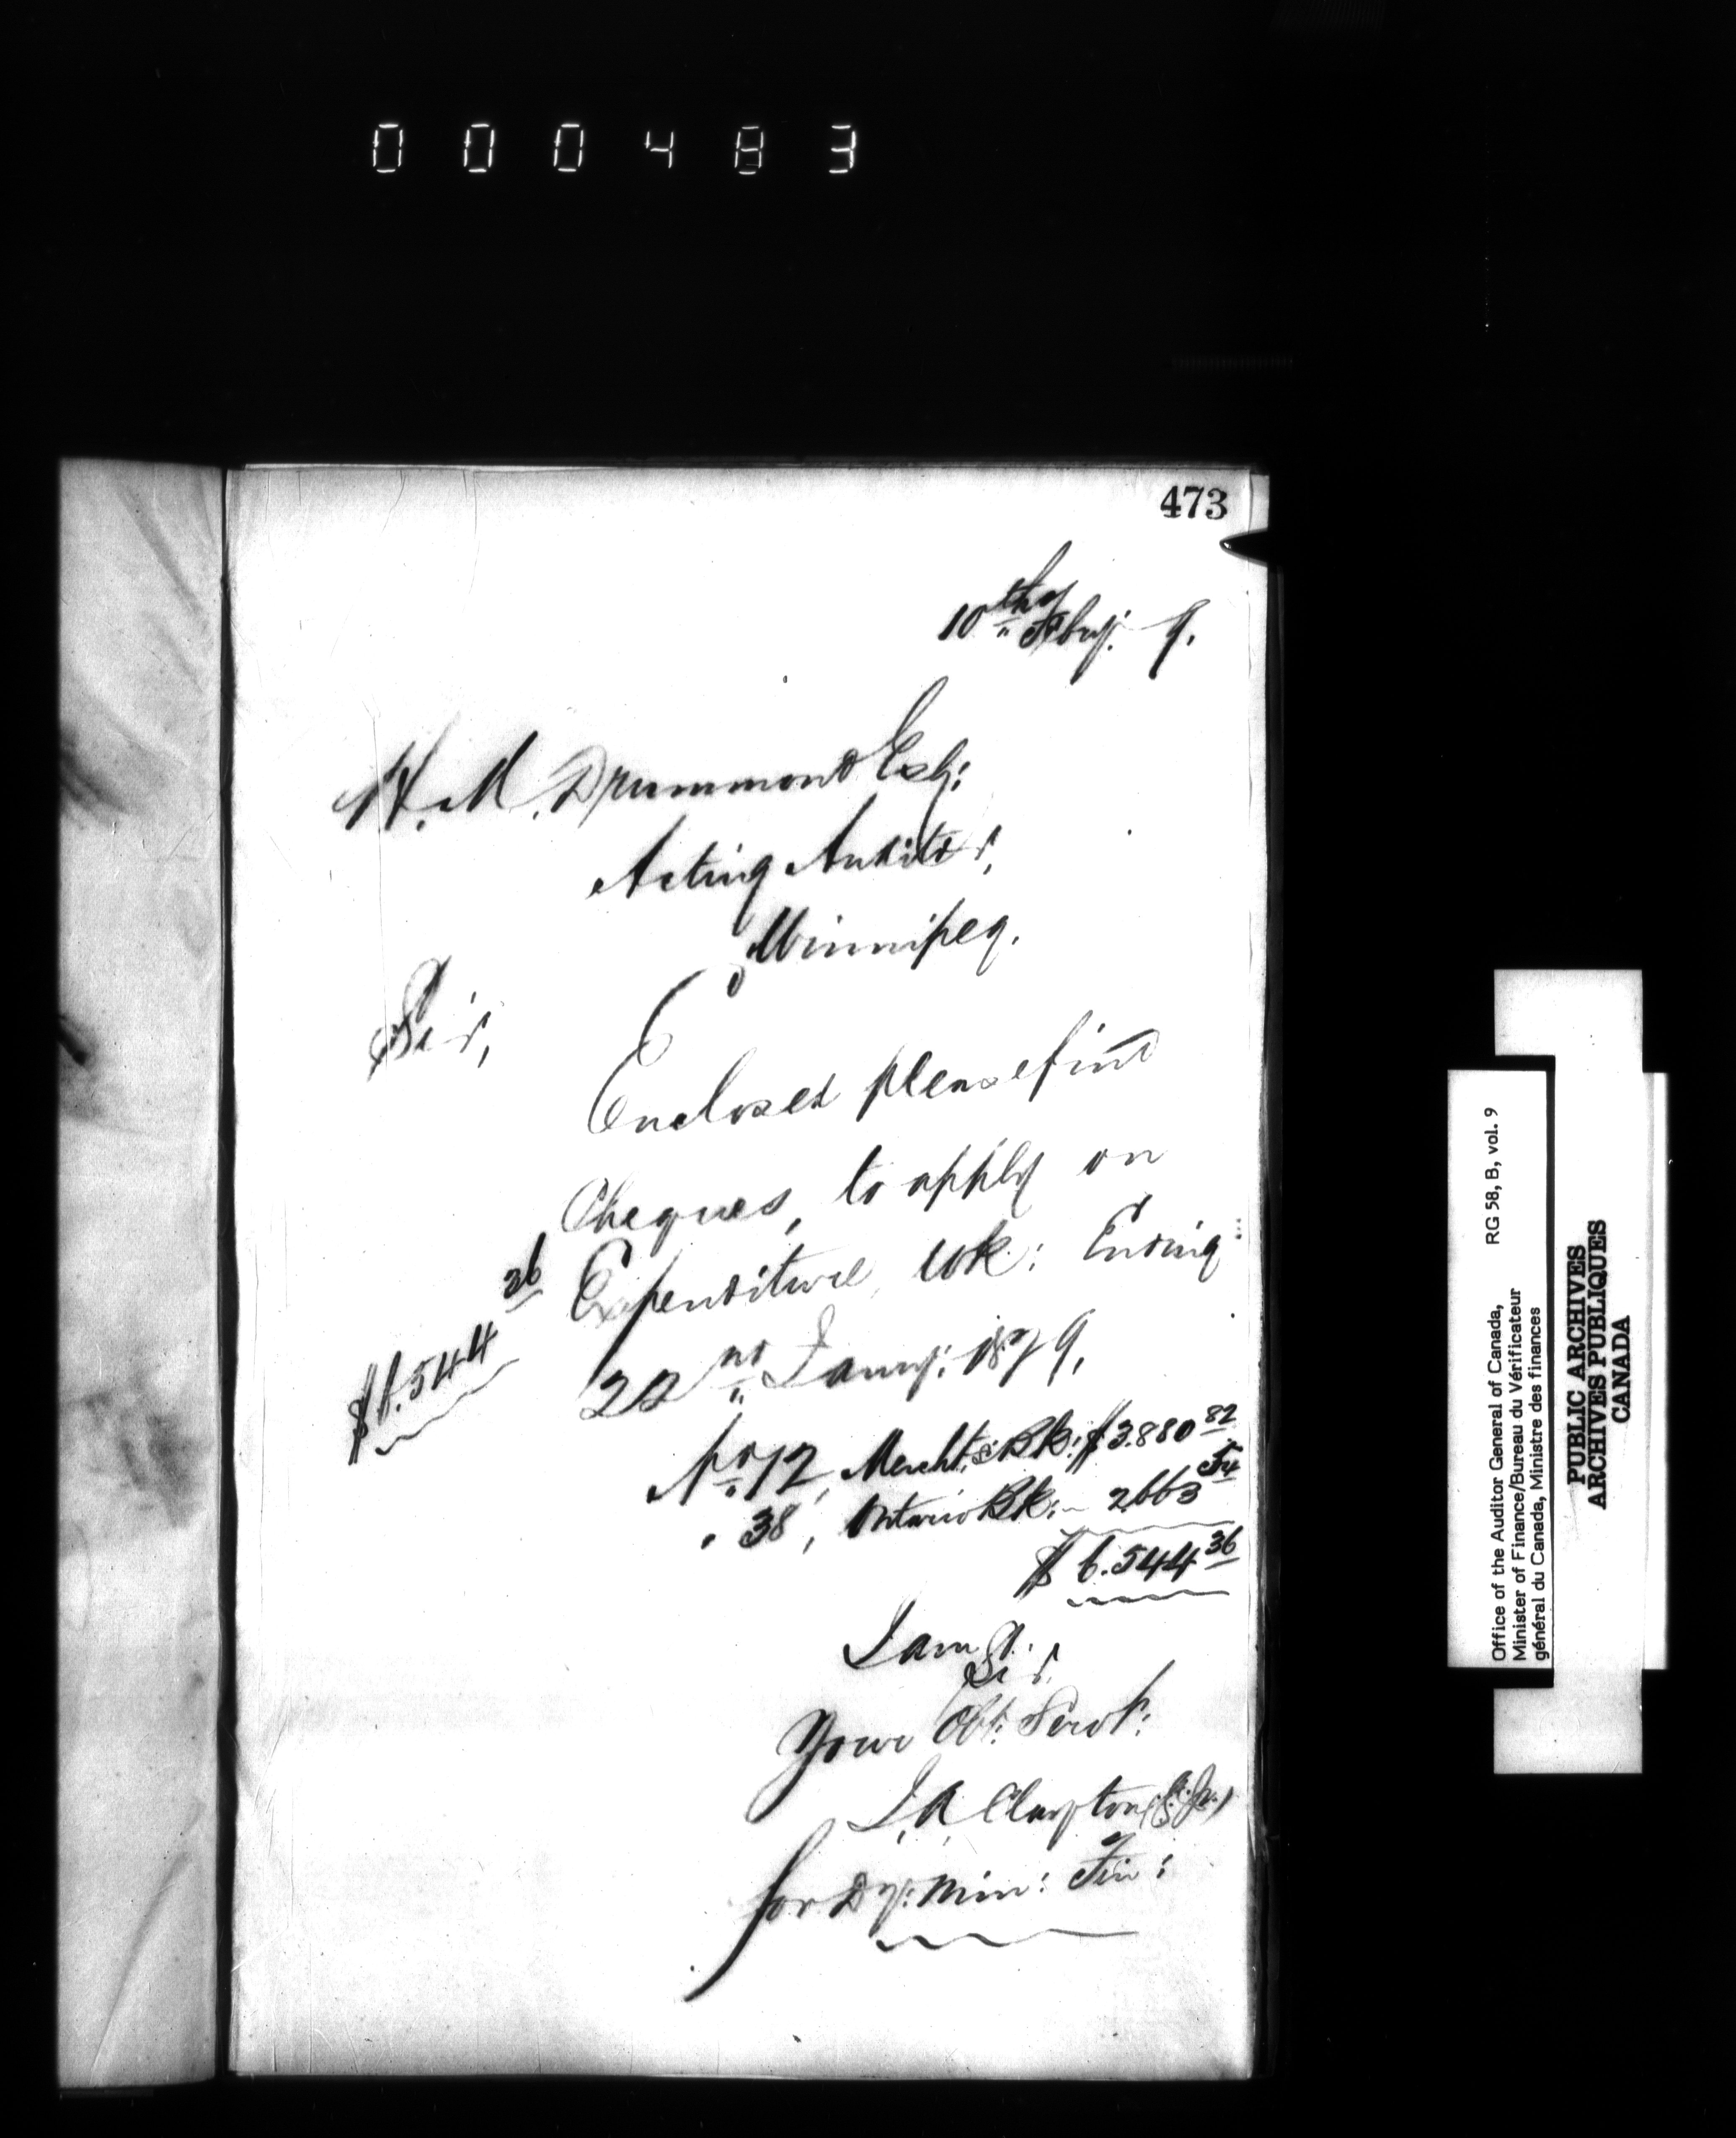 000483
473
10th Feby: 9.
H. M. Drummond Esq:
Acting Auditor,
Winnipeg.
Sir,
Enclosed please find
Cheques, to apply on
Expenditure wk: Ending
22nd Jany: 1879,
$6.544 36
No 12, Mercht's Bk: $3.880 82
" 38, Ontario Bk: 2663 54
$6.544 36
I am
Sir,
Your Obt: Servt:
J. A. Clayton
for Dy: Min: Fin:
Office of the Auditor General of Canada, RG 58, B, vol. 9
Minister of Finance/Bureau du Vérificateur
général du Canada, Ministre des finances
PUBLIC ARCHIVES
ARCHIVES PUBLIQUES
CANADA